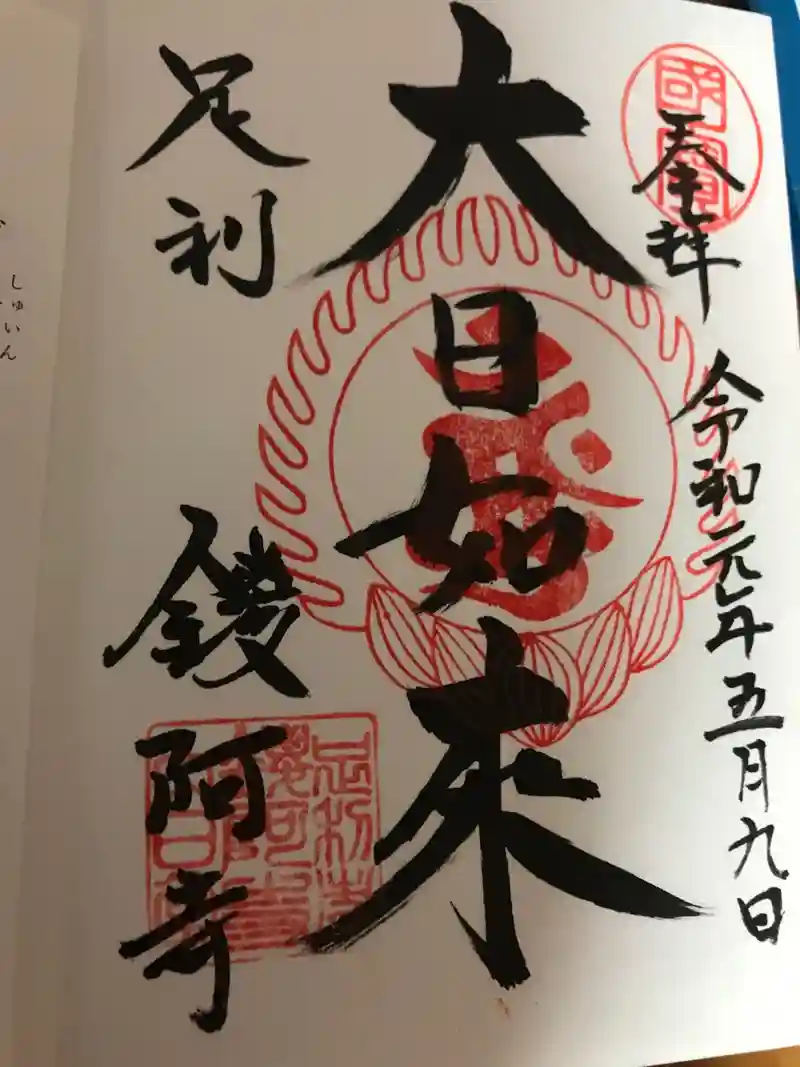 奉拝
令和元年五月九日
國寶
大日如来
足利
鑁阿寺
しゅいん